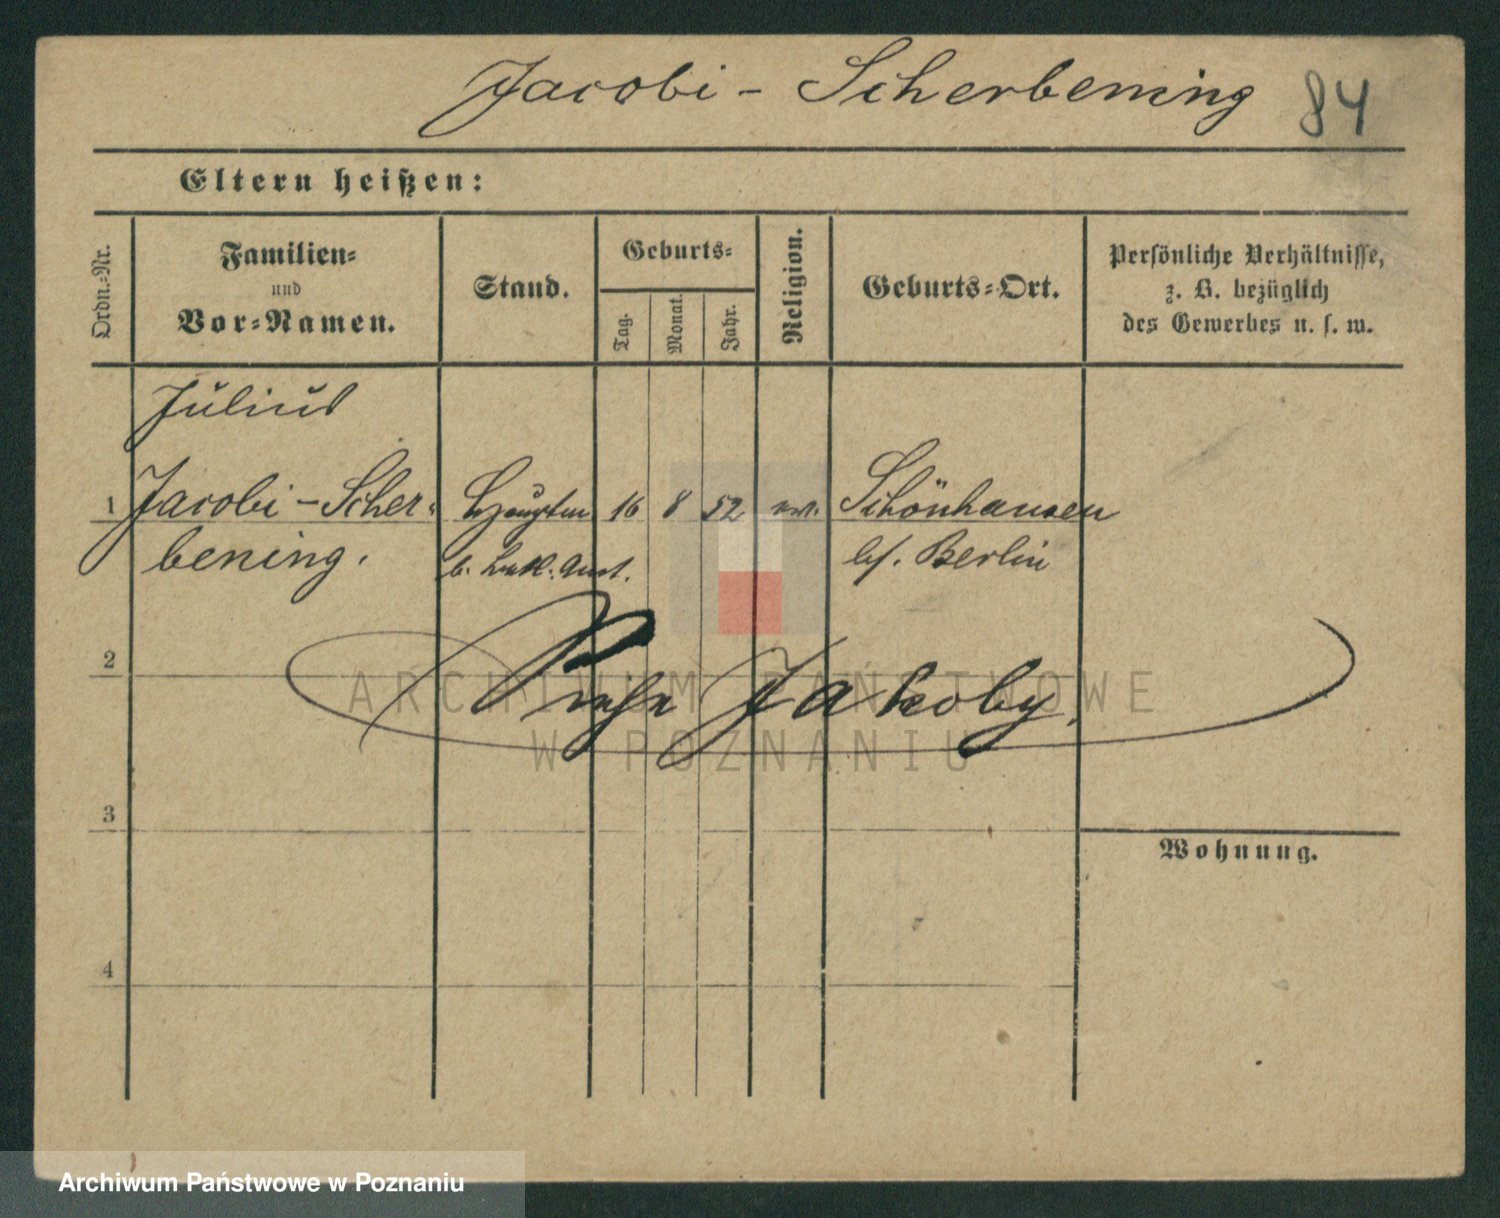 Jacobi - Scherbening 84
Eltern heißen:
Ordn.-Nr.
Familien-
und
Vor-Namen.
Stand.
Geburts-
Tag.
Monat.
Jahr.
Religion.
Geburts-Ort.
Persönliche Verhältnisse,
z. B. bezüglich
des Gewerbes u. s. w.
Julius
1 Jacobi - Scher- Hauptm 16 8 52 ev. Schönhausen
bening. b. Berlin
2
Siehe Jakoby.
3
Wohnung.
4
ARCHIWUM PAŃSTWOWE
W POZNANIU
Archiwum Państwowe w Poznaniu